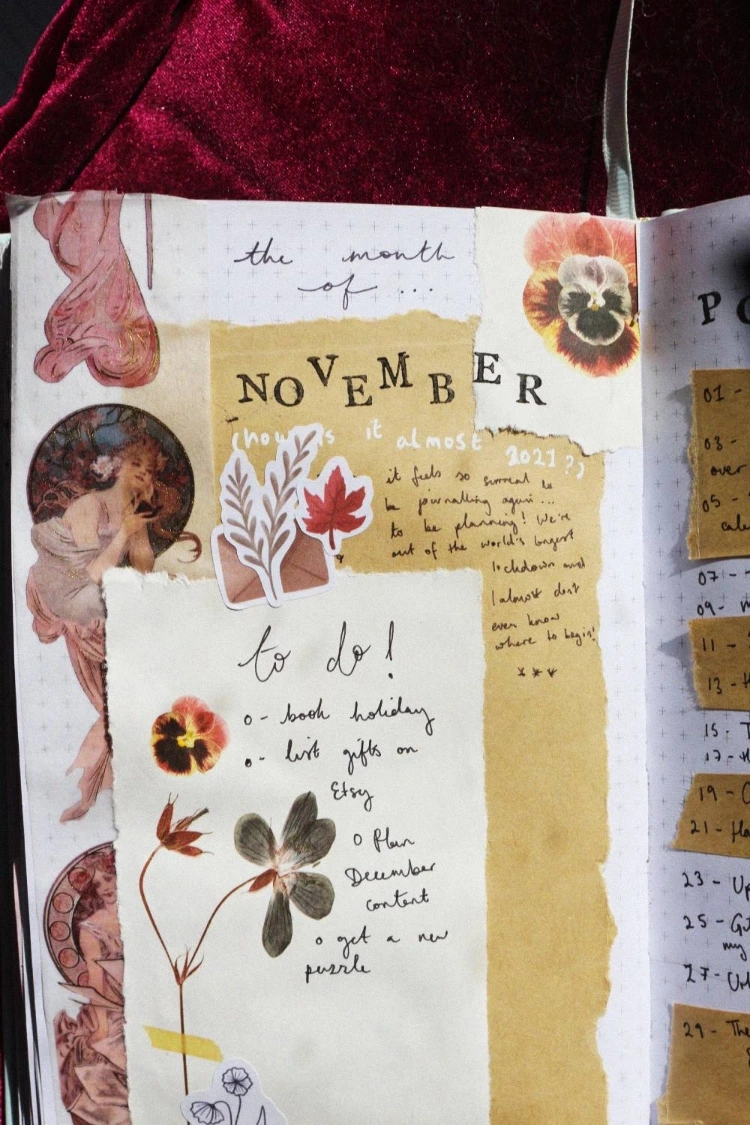 the month
of ...
NOVEMBER
(how is it almost 2021?)
it feels so surreal to
be journalling again...
to be planning! We're
out of the world's longest
lockdown and
I almost don't
even know
where to begin!
to do!
o - book holiday
o - list gifts on
Etsy
o Plan
December
content
o get a new
puzzle
01 -
03 -
over
05 -
07 -
09 -
11 -
13 -
15 -
17 -
19 -
21 -
23 - Up
25 -
my
27 -
29 - The